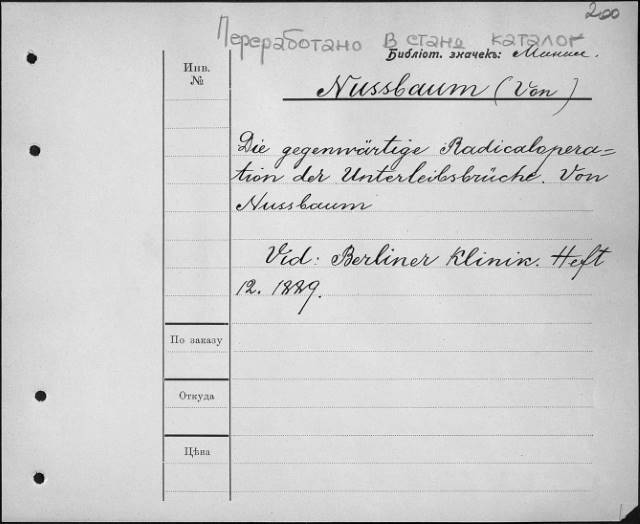 200
Переработано в станд каталог
Библіот. значекъ:
Инв.
№
Nussbaum (Von)
Die gegenwärtige Radicalopera=
tion der Unterleibsbrüche. Von
Nussbaum
Vid: Berliner Klinik. Heft
12. 1889.
По заказу
Откуда
Цѣна